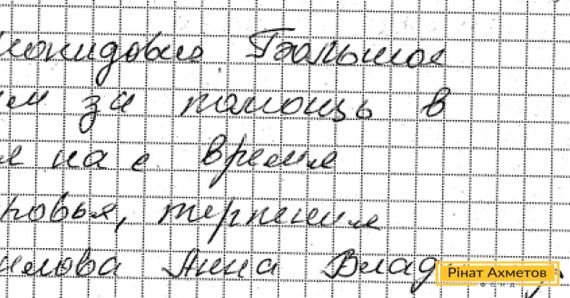 лонидовис Большое
ем за помощь в
е нас время
ровья, терпения
илова Анна Влад
Рінат Ахметов
Фонд